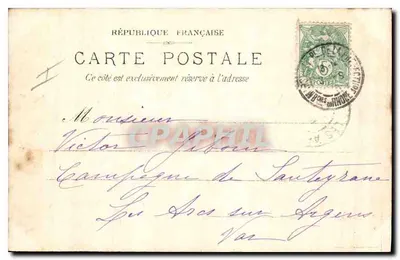 RÉPUBLIQUE FRANÇAISE
CARTE POSTALE
Ce côté est exclusivement réservé à l'adresse
Monsieur
Victor
Campagne de Sauteyrane
Les Arcs sur Argens
Var
CPAPHIL